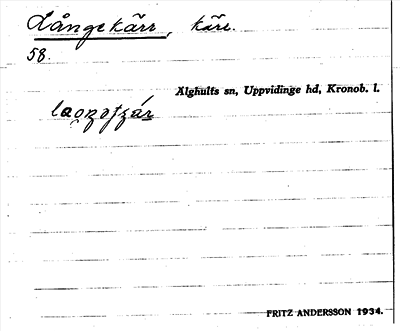 Långekärr, kärr.
58.
Älghults sn, Uppvidinge hd, Kronob. l.
FRITZ ANDERSSON 1934.